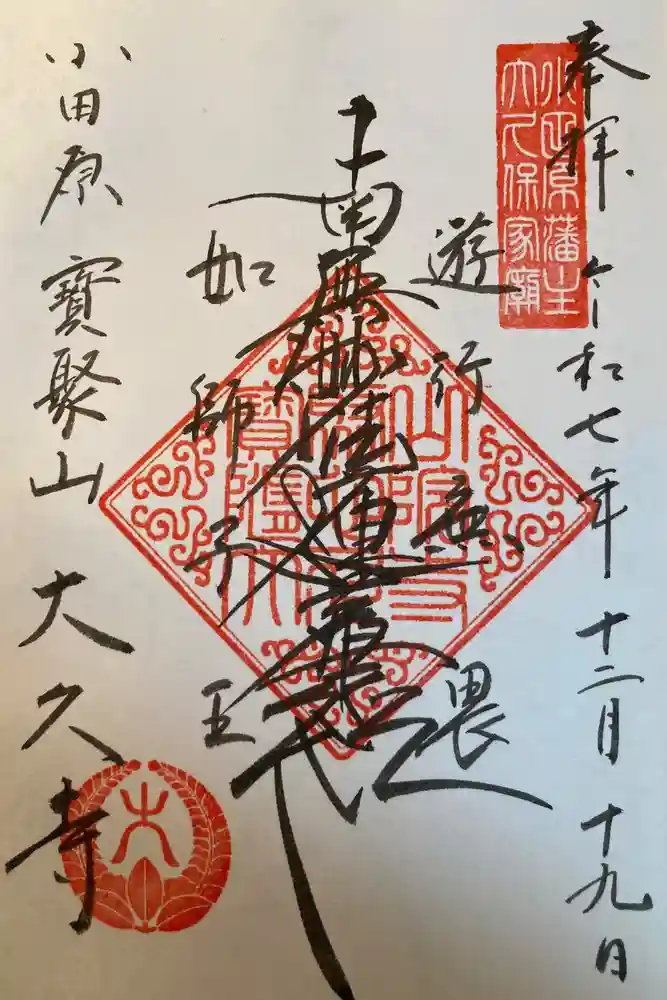 奉拝 令和七年 十二月 十九日
小田原藩主
大久保家廟
遊行無畏
南無妙法蓮華経
如師子王
小田原 寳聚山 大久寺